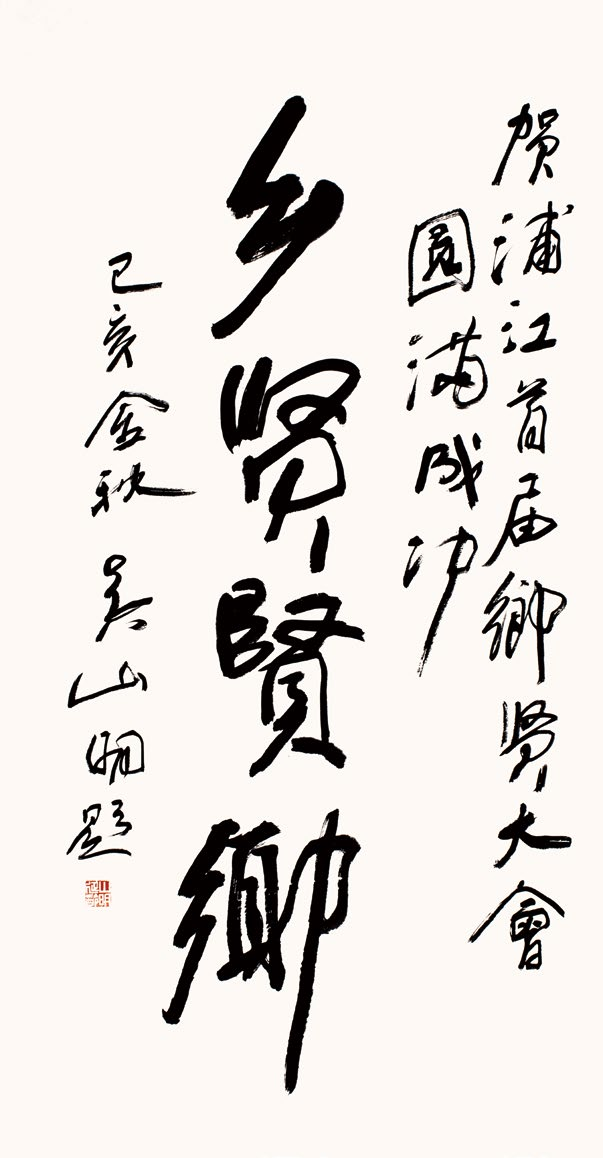 贺浦江首届鄉贤大會
圆满成功
乡贤賢鄉
己亥金秋 吴山明题